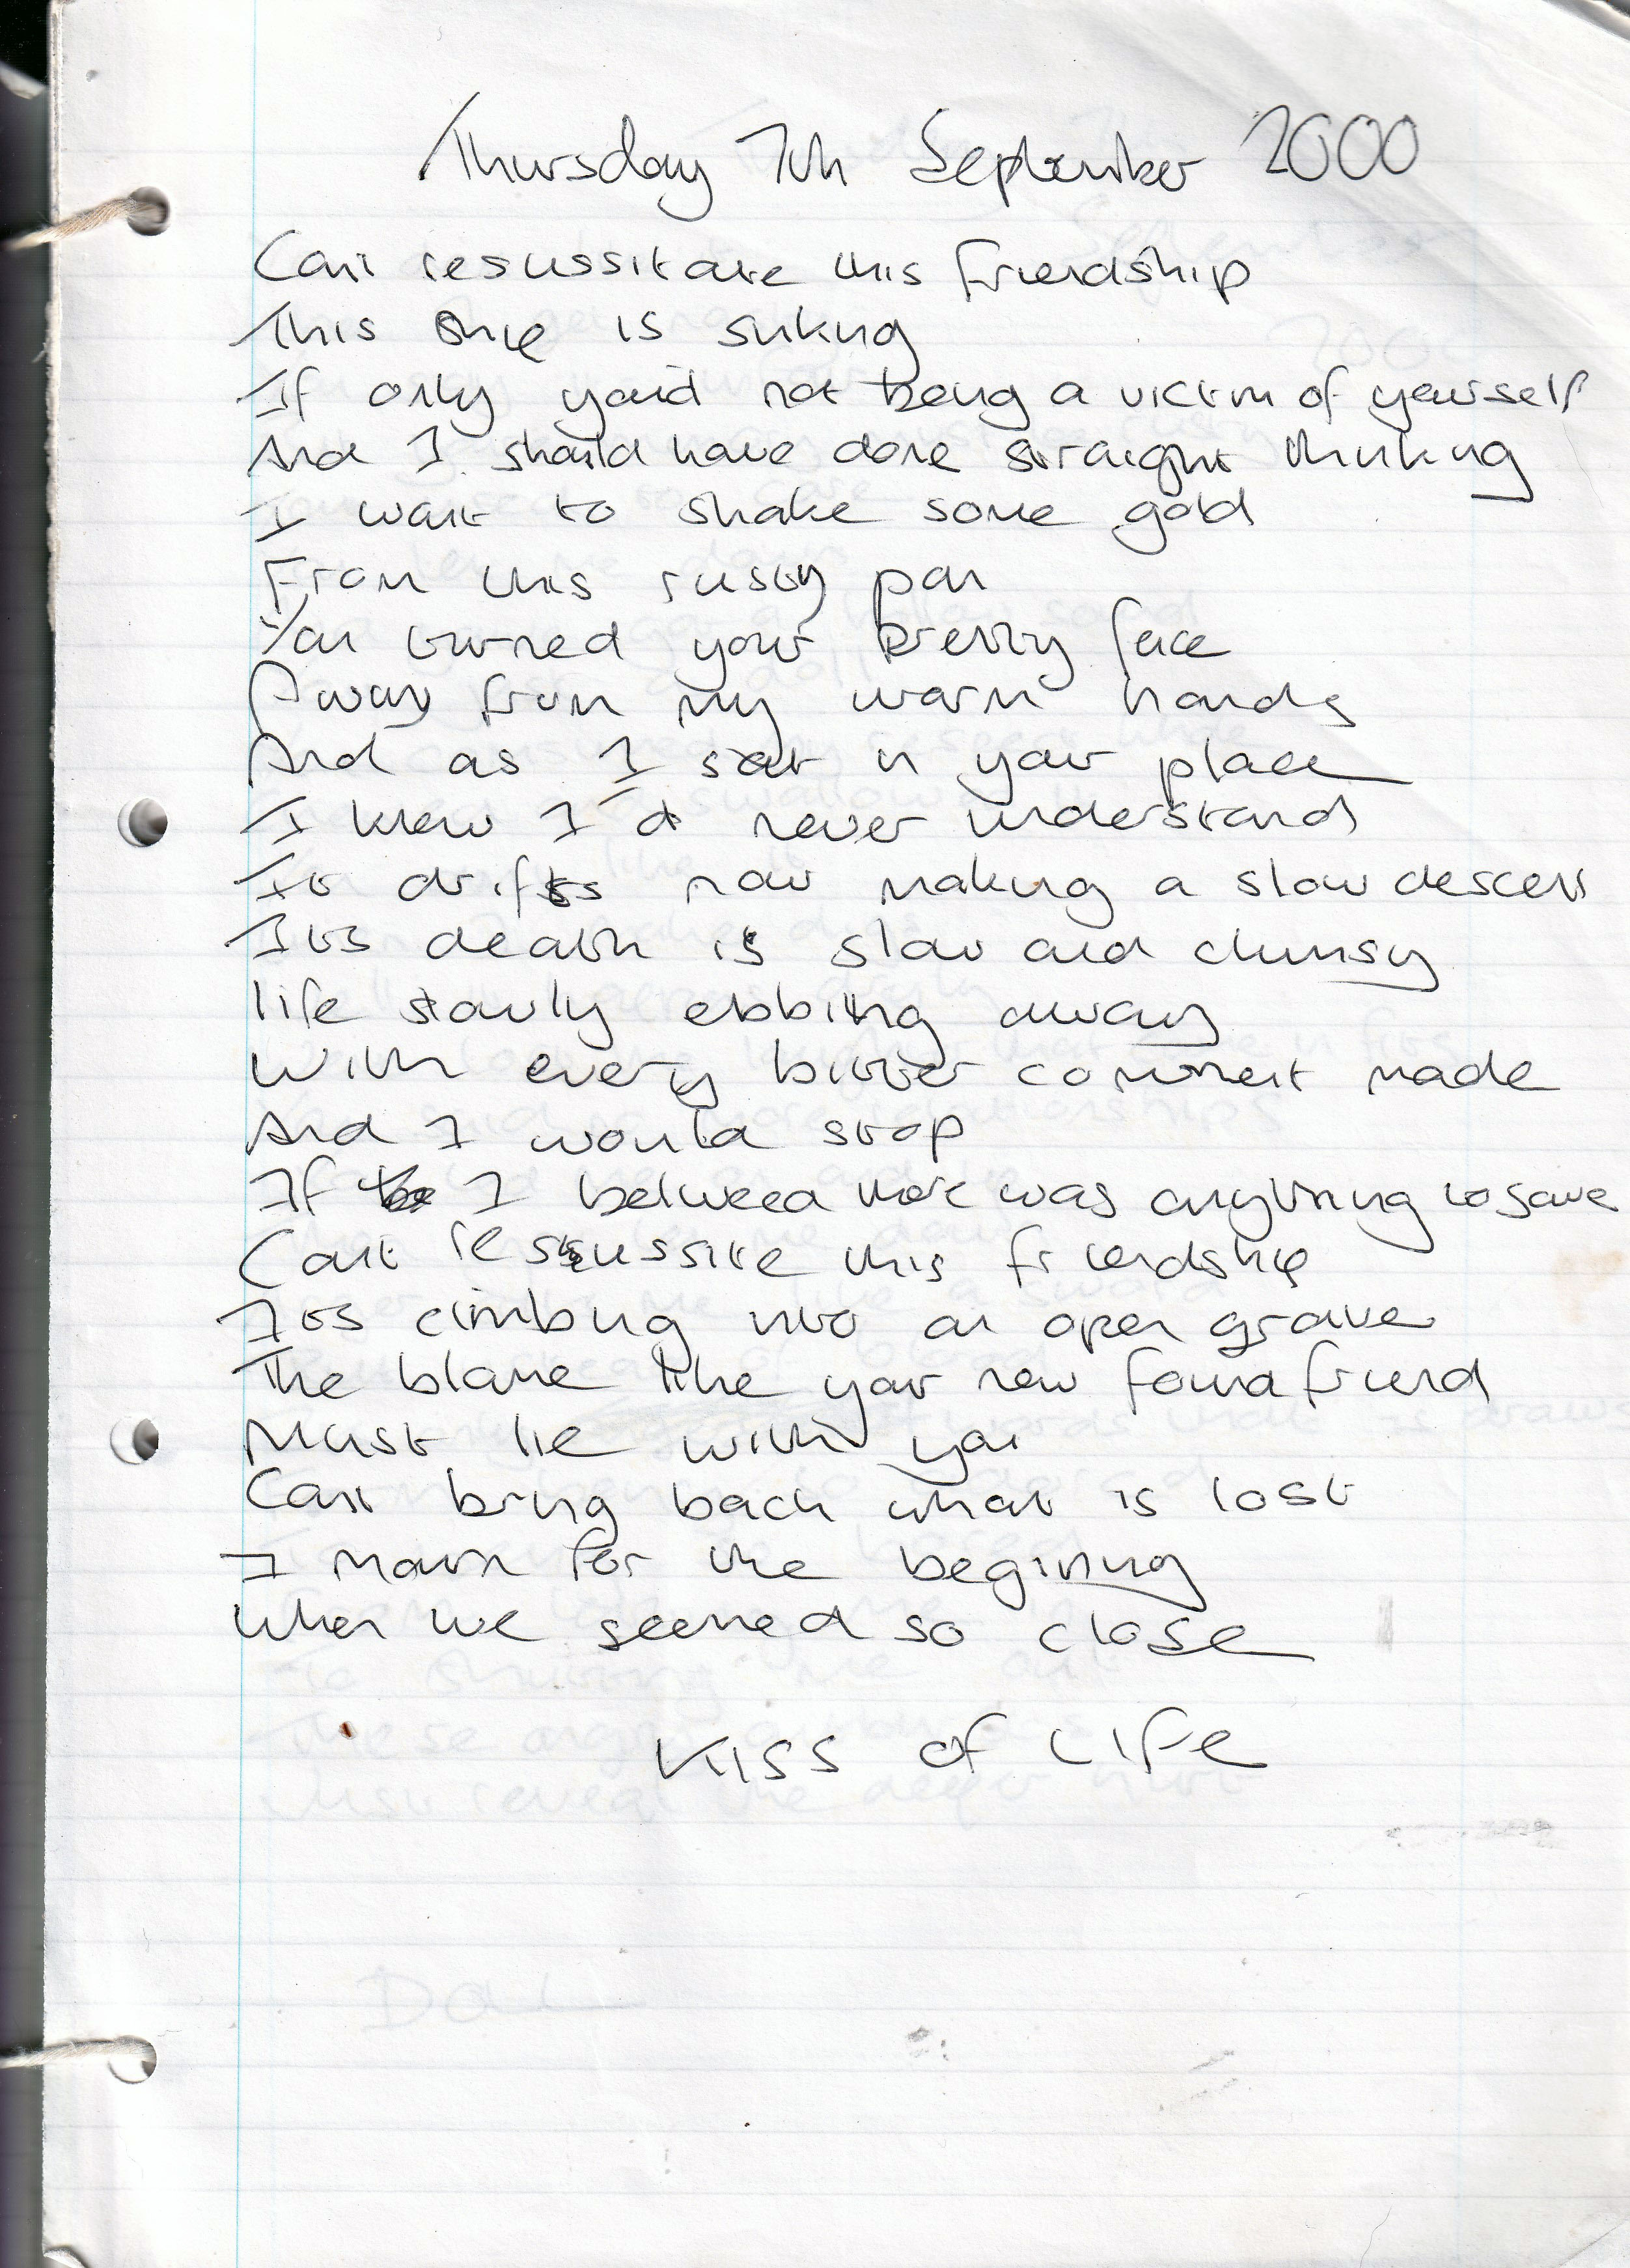 Thursday 7th September 2000
Cant resussitate this friendship
This ship is sinking
If only you'd not being a victim of yourself
And I should have done straight thinking
I want to shake some gold
From this rusty pan
You turned your pretty face
Away from my warm hands
And as I sat in your place
I knew I'd never understand
It drifts now making a slow descent
Its death is slow and clumsy
life slowly ebbing away
With every bitter comment made
And I would stop
If I believed there was anything to save
Cant resussite this friendship
Its climbing into an open grave
The blame like your new found friend
Must lie with you
Cant bring back what is lost
I mourn for the begining
When we seemed so close
Kiss of Life